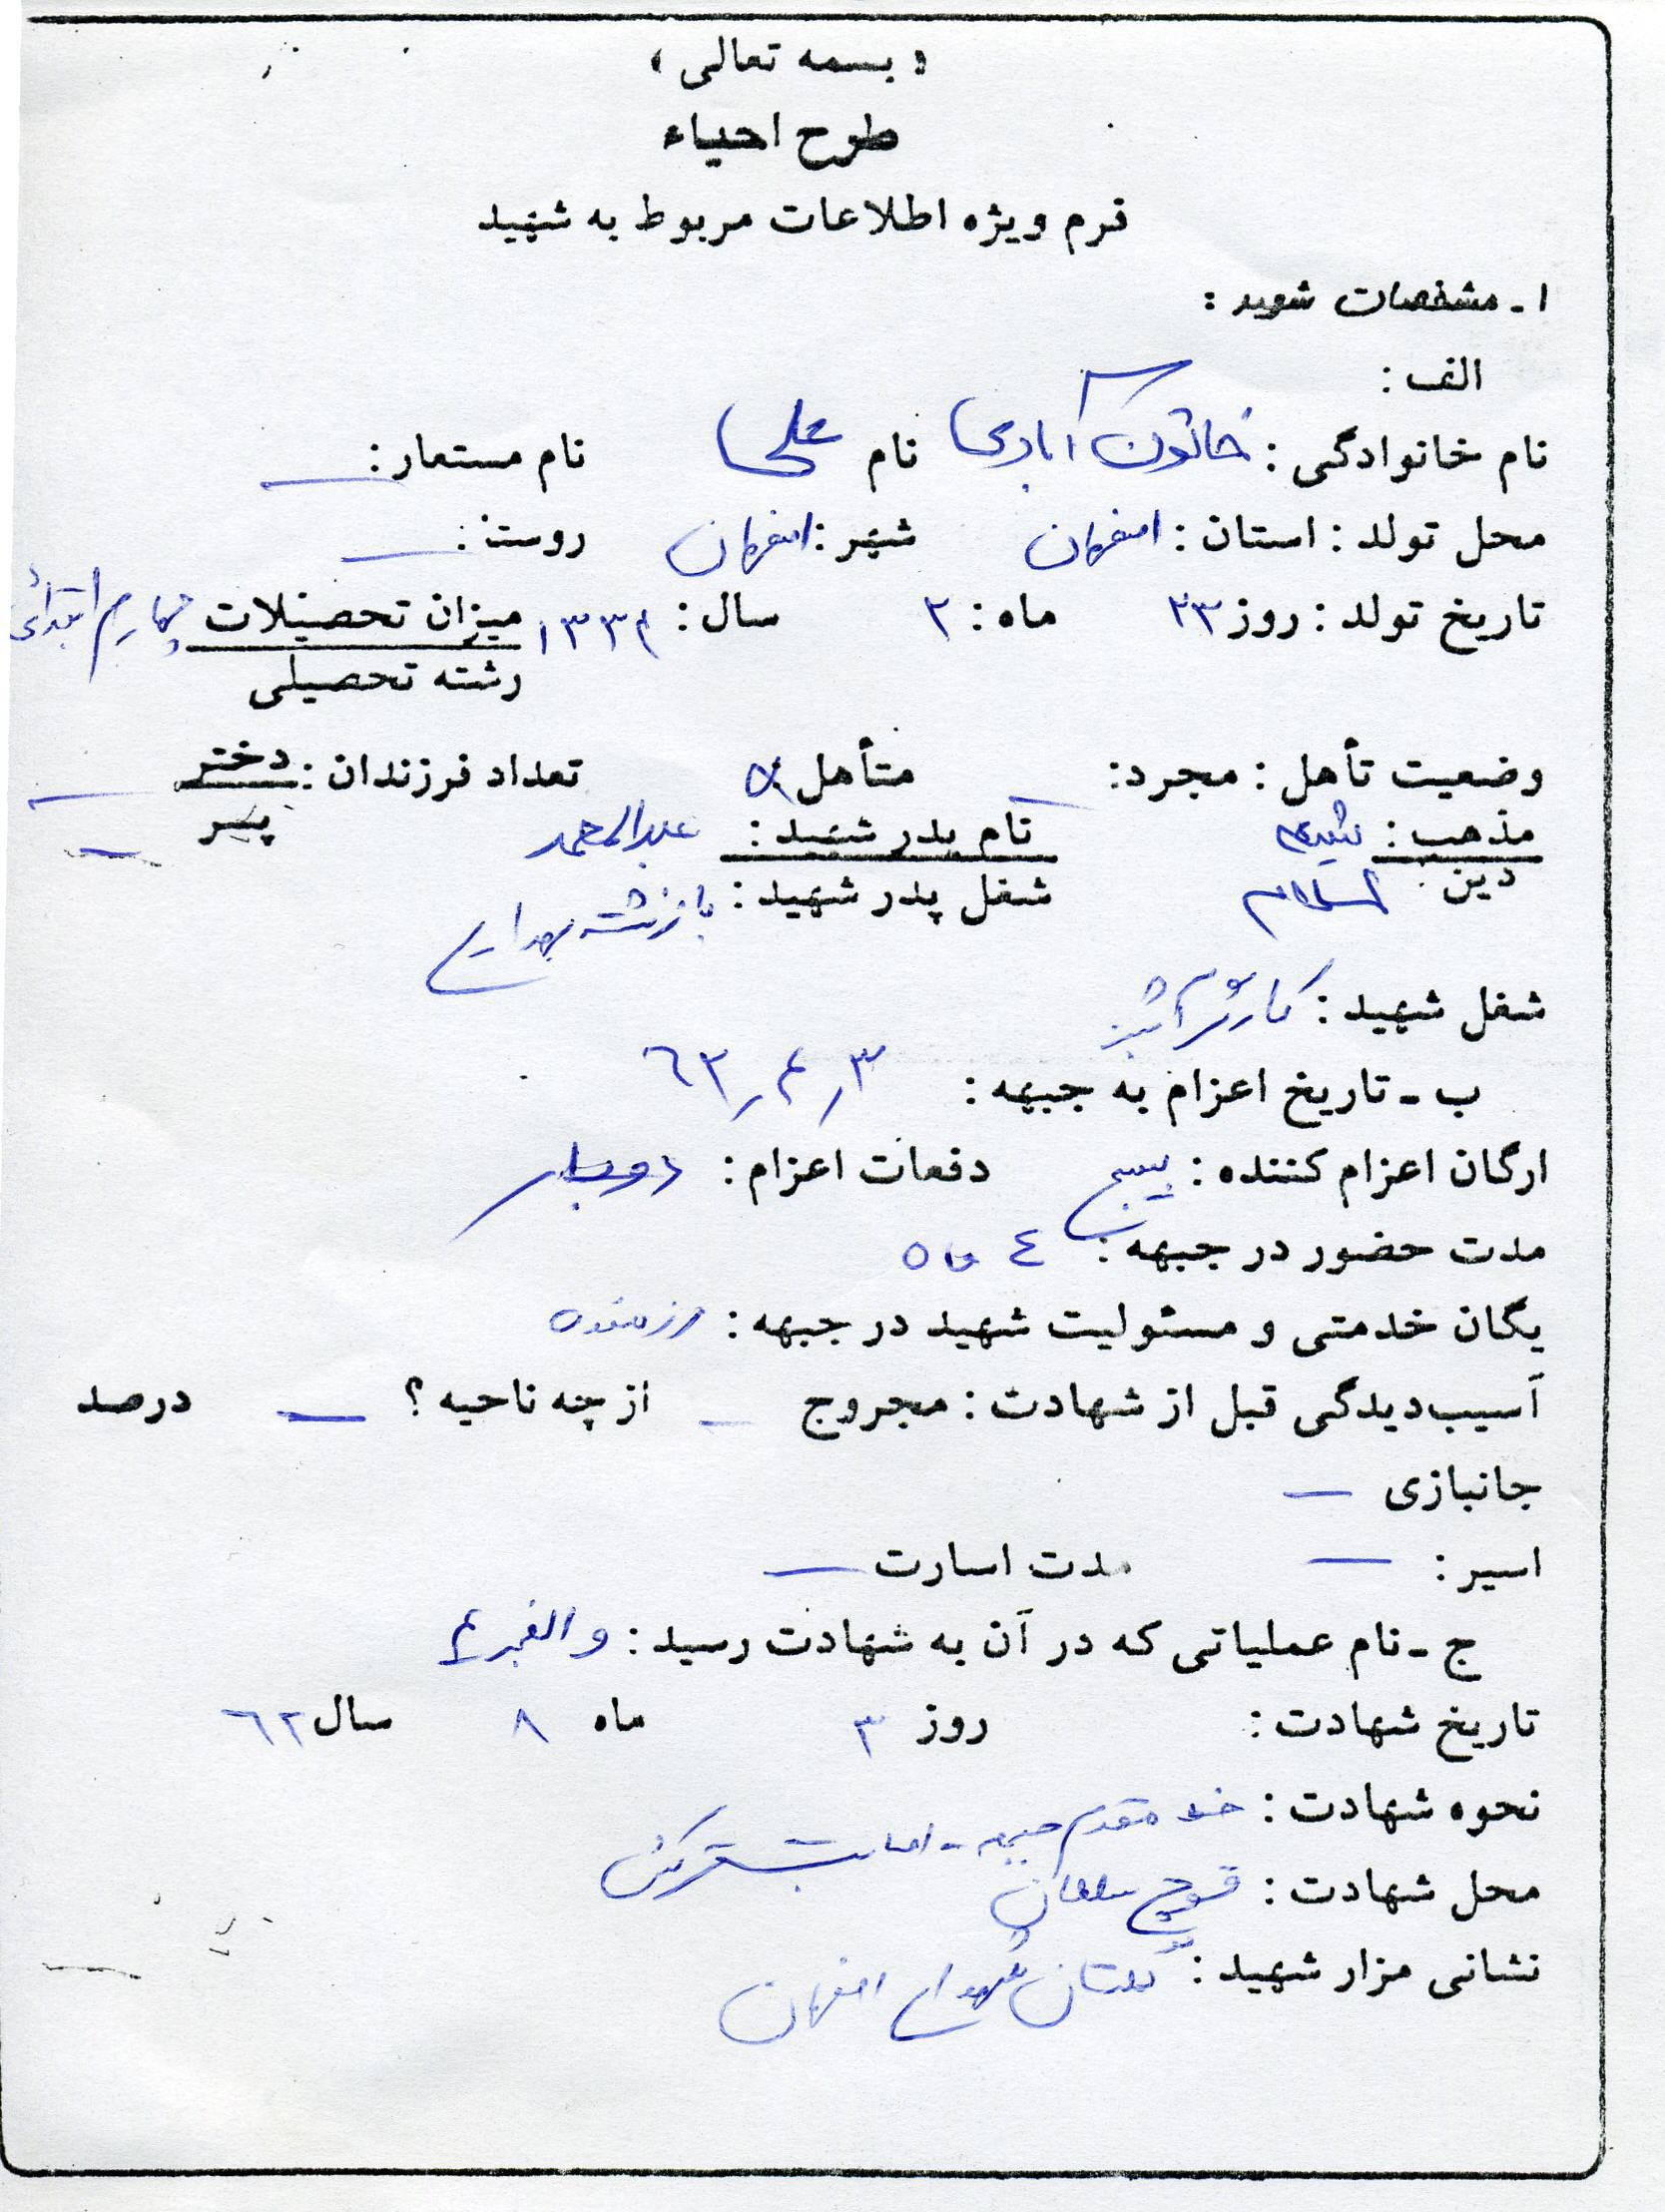 « بسمه تعالی »
طرح احیاء
فرم ویژه اطلاعات مربوط به شهید
۱ - مشخصات شهید :
الف :
نام خانوادگی : خاتون آبادی نام علی نام مستعار : —
محل تولد : استان : اصفهان شهر : اصفهان روستا : —
تاریخ تولد : روز ۲۳ ماه : ۲ سال : ۱۳۳۴ میزان تحصیلات چهارم ابتدائی
رشته تحصیلی
وضعیت تأهل : مجرد : — متأهل : تعداد فرزندان : دختر —
پسر —
مذهب : شیعه نام پدر شهید : عبدالمحمد
دین : اسلام شغل پدر شهید : بازنشسته بهداری
شغل شهید :
ب - تاریخ اعزام به جبهه : ۳ ر ۴ ر ۶۲
ارگان اعزام کننده : بسیج دفعات اعزام : دوبار
مدت حضور در جبهه : ٤ ماه
یگان خدمتی و مسئولیت شهید در جبهه : رزمنده
آسیب‌دیدگی قبل از شهادت : مجروح — از چه ناحیه ؟ — درصد
جانبازی —
اسیر : — مدت اسارت —
ج - نام عملیاتی که در آن به شهادت رسید : والفجر ۴
تاریخ شهادت : روز ۳ ماه ۸ سال ۶۲
نحوه شهادت : خط مقدم جبهه - اصابت ترکش
محل شهادت : قوچ سلطان
نشانی مزار شهید : گلستان شهدای اصفهان